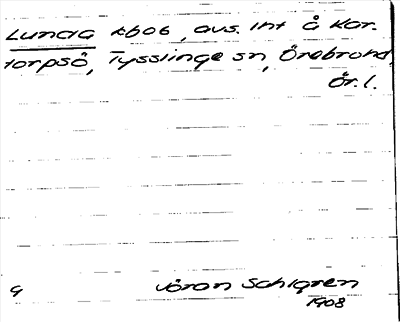 Lunda tbos, avs. int å Kar-
torpsö, Tysslinge sn, Örebro hd,
Ör. l.
G
Jöran Sahlgren
1908